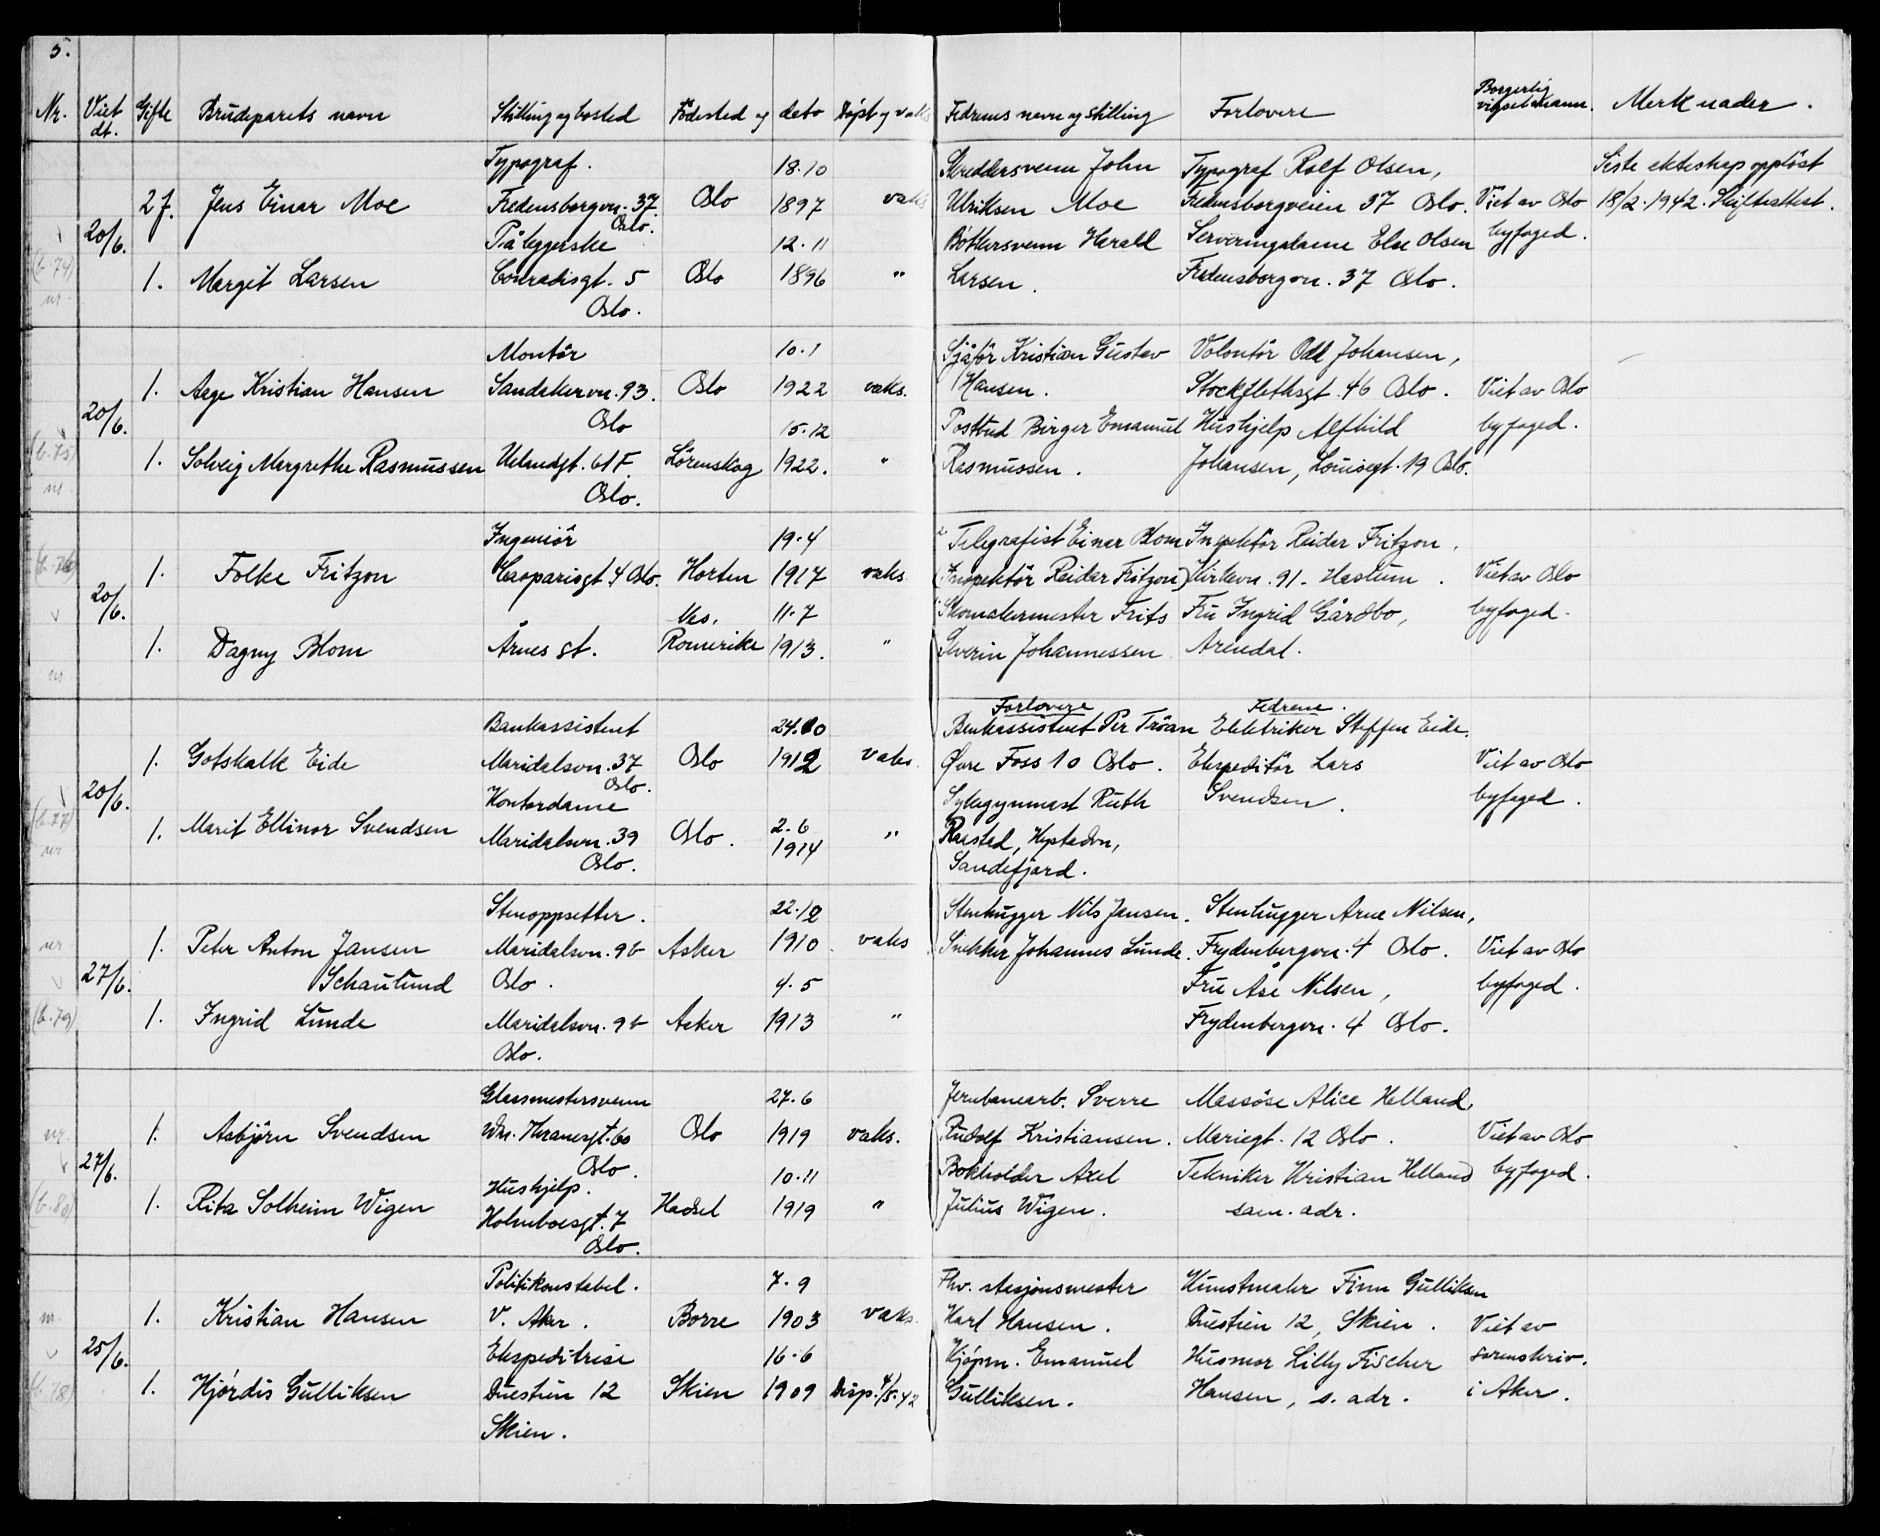 5.
Nr. Viet dt. Gifte Brudeparets navn Stilling og bosted Fødested og dato Døpt og vaks Fedrenes navn og stilling Forlovere Borgerlig vigselsmann. Merknader.
Typograf. 18.10 Skreddersvenn John Typograf Rolf Olsen, Siste ekteskap oppløst
2 f. Jens Einar Moe Fredensborgvn. 37. Oslo 1897 vaks Ulriksen Moe Fredensborgveien 37 Oslo. Viet av Oslo 18/2.1942. Skifteattest.
Oslo.
20/6. Påleggerske 12.11 Bøtkersvenn Harald Serveringsdame Else Olsen byfoged.
(b.74) 1. Margit Larsen Conradisgt. 5 Oslo 1896 " Larsen. Fredensborgvn. 37 Oslo.
nr. Oslo.
Montör 10.1 Sjåför Kristian Gustav Volontör Odd Johansen,
1. Aage Kristian Hansen Sandakervn. 93. Oslo 1922 vaks. Hansen. Stockflethsgt. 46 Oslo. Viet av Oslo
20/6. Oslo 15.12 Postbud Birger Emanuel Hushjelp Alfhild byfoged.
(b.75) 1. Solveig Margrethe Rasmussen Uelandsgt. 61 F. Lörenskog 1922. " Rasmussen. Johansen, Louisegt. 19 Oslo.
nr Oslo.
Ingeniör 19.4 Telegrafist Einar Blom Inspektör Reidar Fritzon,
(b.76) 1. Folke Fritzon Casparisgt. 4 Oslo. Horten 1917 vaks. (Inspektör Reidar Fritzon) Kirkevn. 91- Haslum. Viet av Oslo
20/6. Nes, 11.7 Skomakermester Frits Fru Ingrid Gårdbo, byfoged.
1. Dagny Blom Årnes st. Romerike 1913. " Severin Johannessen Arendal.
nr
Forlovere Fedrene.
Bankassistent 24.10 Bankassistent Per Tröan Elektriker Steffen Eide.
1. Gotskalk Eide Maridalsvn. 37 Oslo 1912 vaks. Øvre Foss 10 Oslo. Ekspeditör Lars Viet av Oslo
Oslo.
20/6. Kontordame Sykegymnast Ruth Svendsen. byfoged.
(b.77) 1. Marit Ellinor Svendsen Maridalsvn. 39 Oslo. 2.6 1914 " Raastad,
nr Oslo. Sandefjord.
Stenoppsetter. 22.12 Stenhugger Nils Jansen. Stenhugger Arne Nilsen,
nr 1. Peter Anton Jansen Maridalsvn. 9b Asker 1910. vaks Snekker Johannes Lunde. Frydenbergvn. 4 Oslo. Viet av Oslo
27/6. Schaulund Oslo. 4.5 Fru Åse Nilsen, byfoged.
(b.79) 1. Ingrid Lunde Maridalsvn. 9b Asker 1913 " Frydenbergvn. 4 Oslo.
Oslo.
Glassmestersvenn 27.6 Jernbanearb. Sverre Massöse Alice Helland,
nr. 1. Asbjörn Svendsen Wm. Thranesgt. 60 Oslo 1919 vaks. Rudolf Kristiansen. Mariegt. 12 Oslo. Viet av Oslo
27/6. Oslo. 10.11 Bokholder Axel Tekniker Kristian Helland byfoged.
Hushjelp.
(b.80) 1. Rita Solheim Wigen Holmboesgt. 7 Hadsel 1919 " Julius Wigen. sam. adr.
Oslo.
Politikonstabel. 7.9 Fhv. stasjonsmester Kunstmaler Finn Gulliksen
nr. 1. Kristian Hansen V. Aker. Borre 1903 vaks. Karl Hansen. Duestien 12, Skien. Viet av
25/6. Ekspeditrise 16.6 Kjøpm. Emanuel Husmor Lilly Fischer sorenskriv.
(b.78) 1. Hjördis Gulliksen Duestien 12 Skien 1909 Disp. 4/5.42 Gulliksen. Hansen, s. adr. i Aker.
Skien.